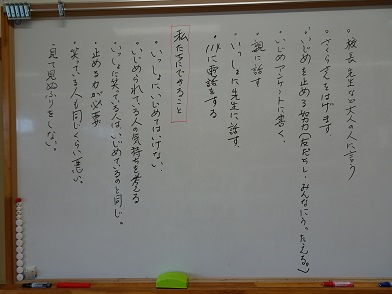 ・校長先生など大人の人に言う
・さくらさんをはげます。
・いじめを止める努力(友だちと、みんなにうったえる。)
・いじめアンケートに書く。
・親に話す
・いっしょに先生に話す。
・に電話をする
私たちにできること
・いっしょにいじめてはいけない。
・いじめられている人の気持ちを考える
いっしょに笑っている人は、いじめているのと同じ。
・止める力が必要
・笑っている人も同じくらい悪い。
・見て見ぬふりをしない。